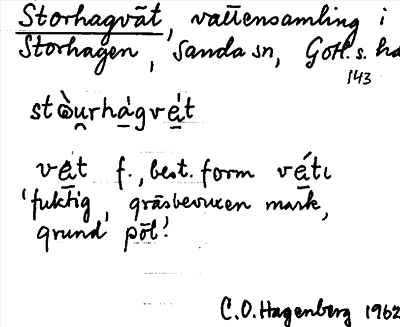 Storhagvät, vattensamling i
Storhagen, Sanda sn, Gotl. s. hd
143
stòu̯rhá̱gvé̱t
vé̱t f., best. form vé̱tı
'fuktig, gräsbevuxen mark,
grund pöl'
C.O. Hagenberg 1962